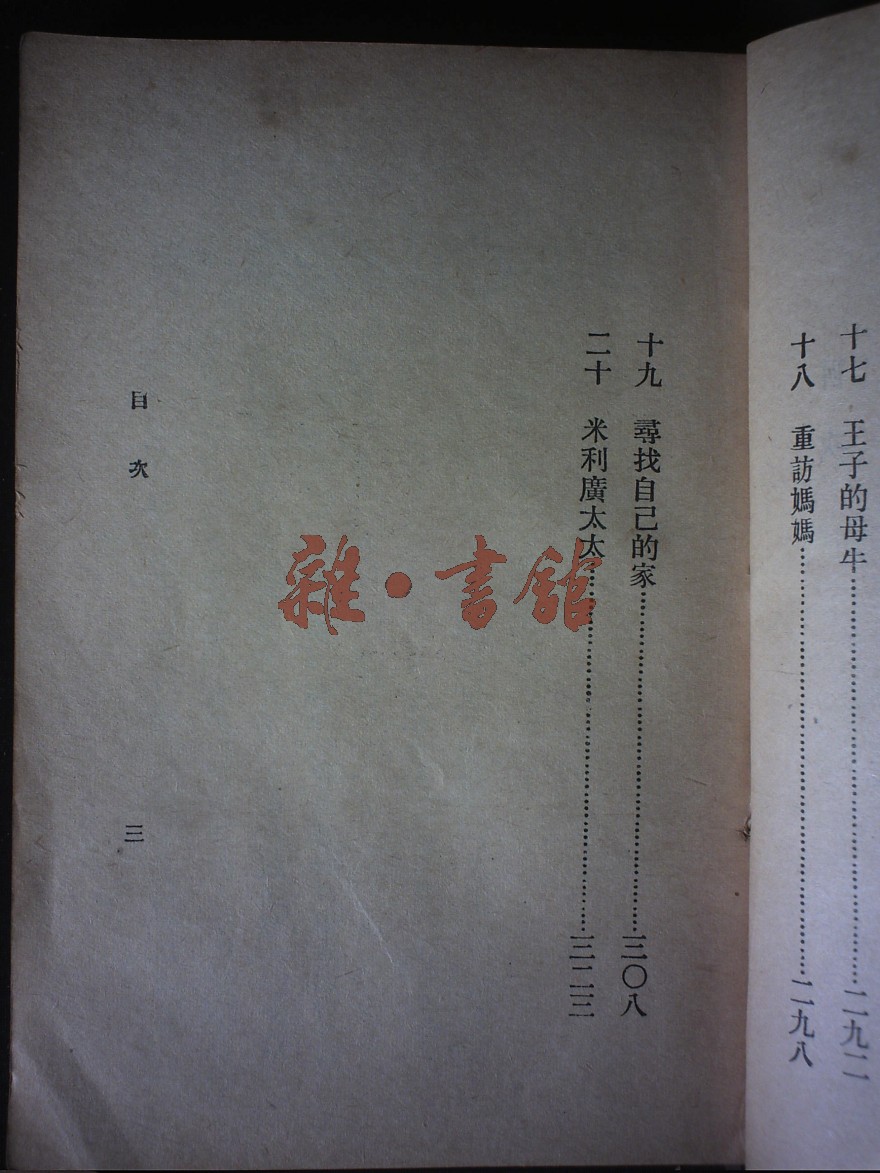 十七 王子的母牛……二九二
十八 重訪媽媽……二九八
十九 尋找自己的家……三〇八
二十 米利廣太太……三二三
目次
三
雜·書館